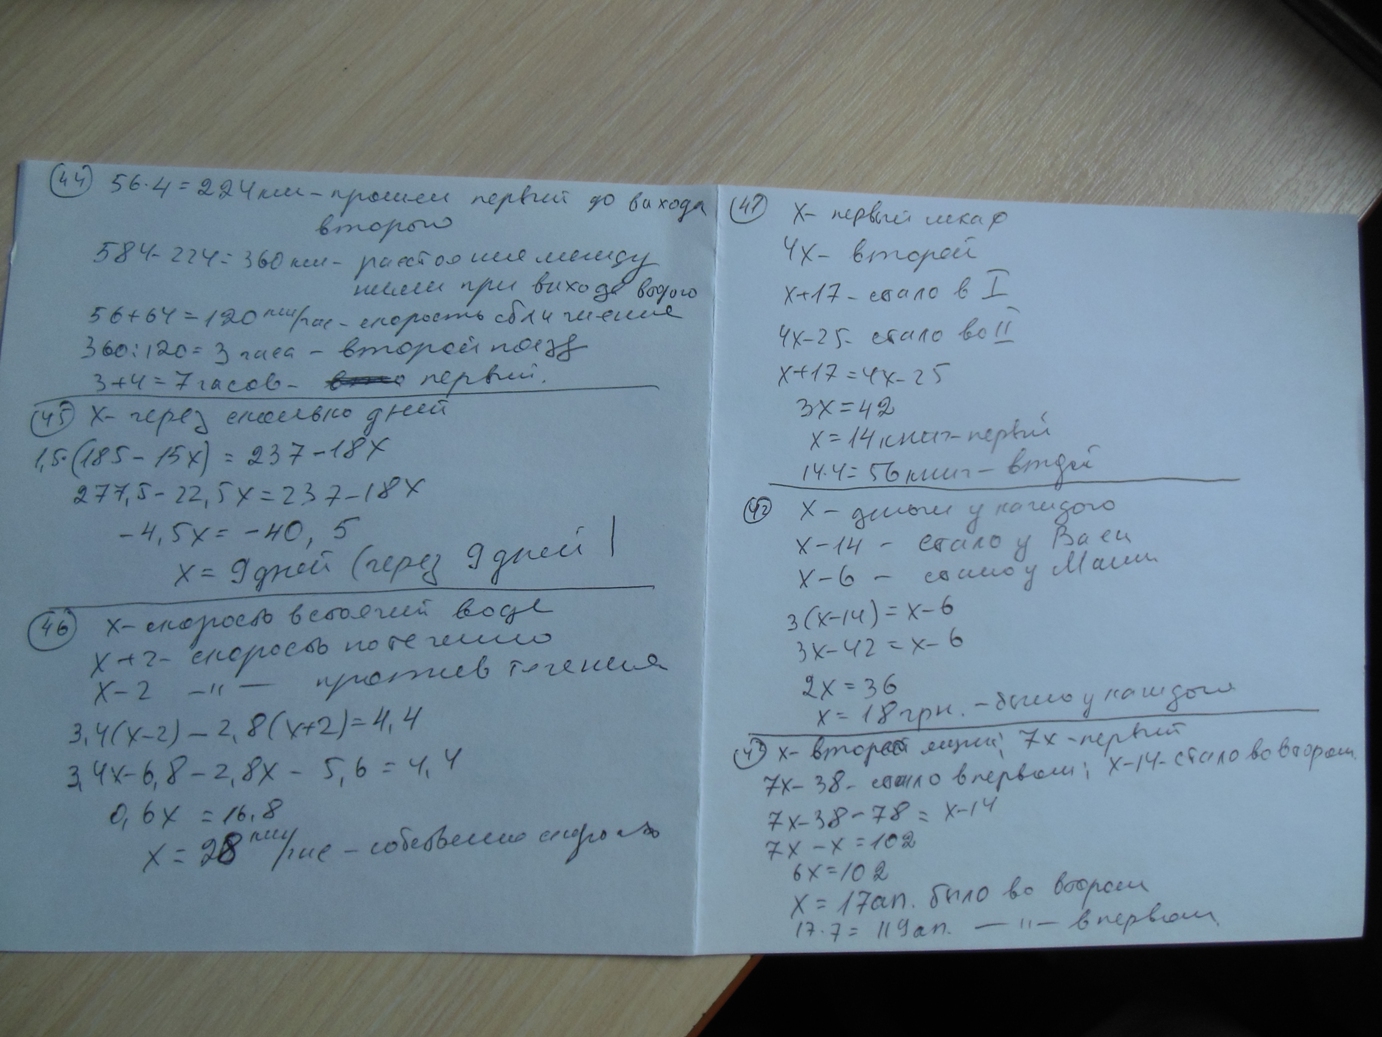 44 56·4=224км-прошел первый до выхода
второго
584-224=360км-расстояние между
ними при выходе второго
56+64=120км/час-скорость сближения
360:120=3 часа-второй поезд
3+4=7 часов- первый.
45 х-через сколько дней
1,5·(185-15х)=237-18х
277,5-22,5х=237-18х
-4,5х=-40,5
х=9дней (через 9дней)
46 х-скорость в стоячей воде
х+2-скорость по течению
х-2 -"- против течения
3,4(х-2)-2,8(х+2)=4,4
3,4х-6,8-2,8х-5,6=4,4
0,6х=16,8
х=28 км/час-собственно скорость
47 х-первый шкаф
4х-второй
х+17-стало в I
4х-25-стало во II
х+17=4х-25
3х=42
х=14книг-первый
14·4=56книг-второй
42 х-деньги у каждого
х-14-стало у Васи
х-6-стало у Маши
3(х-14)=х-6
3х-42=х-6
2х=36
х=18грн.-было у каждого
43 х-второй ящик; 7х-первый
7х-38-стало в первом; х-14-стало во втором
7х-38-78=х-14
7х-х=102
6х=102
х=17ап. было во втором
17·7=119ап. -"- в первом